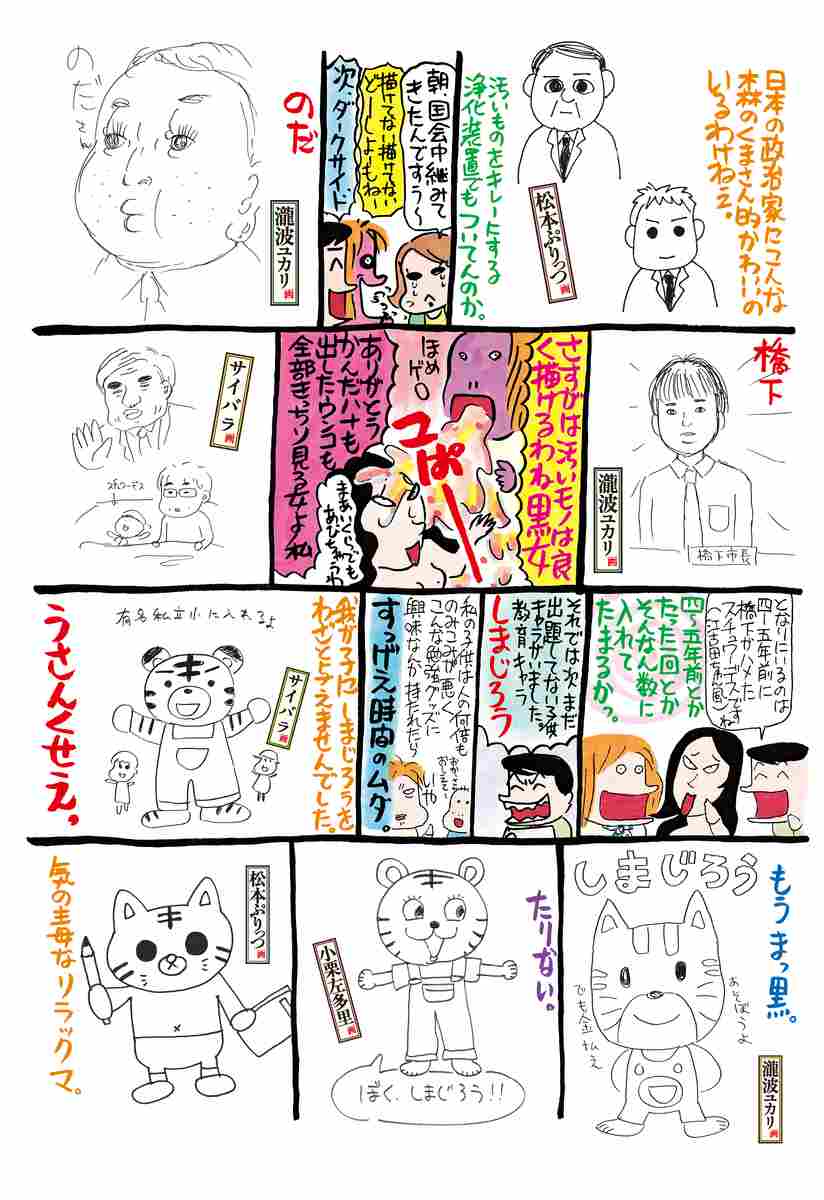 日本の政治家にこんな
森のくまさん的かわいいの
いるわけねえ。
松本ぷりっつ
画
汚いものをキレーにする
浄化装置でもついてんのか。
朝、国会中継みて
きたんですう〜
描けてない描けてない
どーしよーもねい
次、ダークサイド
のだ
瀧波ユカリ
画
のださん
橋下
橋下市長
瀧波ユカリ
画
さすがは汚いモノは良
く描けるわね黒女
ほめ
ゲロ
コぱー
ありがとう
かんだハナも
出したウンコも
全部きっちり見る女よ私
まあいくらでも
あびちゃうわ
サイバラ
画
となりにいるのは
四〜五年前に
橋下がハメた
スチュワーデスです
四〜五年前とか
たった一回とか
そんなん数に
入れて
たまるかっ。
それでは次、まだ
出題してない子供
キャラがいました。
教育キャラ
しまじろう
私の子供は人の何倍も
のみこみが悪く
こんな勉強グッズに
興味なんか持たれたら
おかあさん
おしえて〜
いや
すっげえ時間のムダ。
我が子にしまじろうを
わざと与えませんでした。
サイバラ
画
有名私立小に入れるよ
うさんくせえ。
もうまっ黒。
しまじろう
あそぼうよ
でも金払え
瀧波ユカリ
画
たりない。
小栗左多里
画
ぼく、しまじろう!!
松本ぷりっつ
画
気の毒なリラックマ。